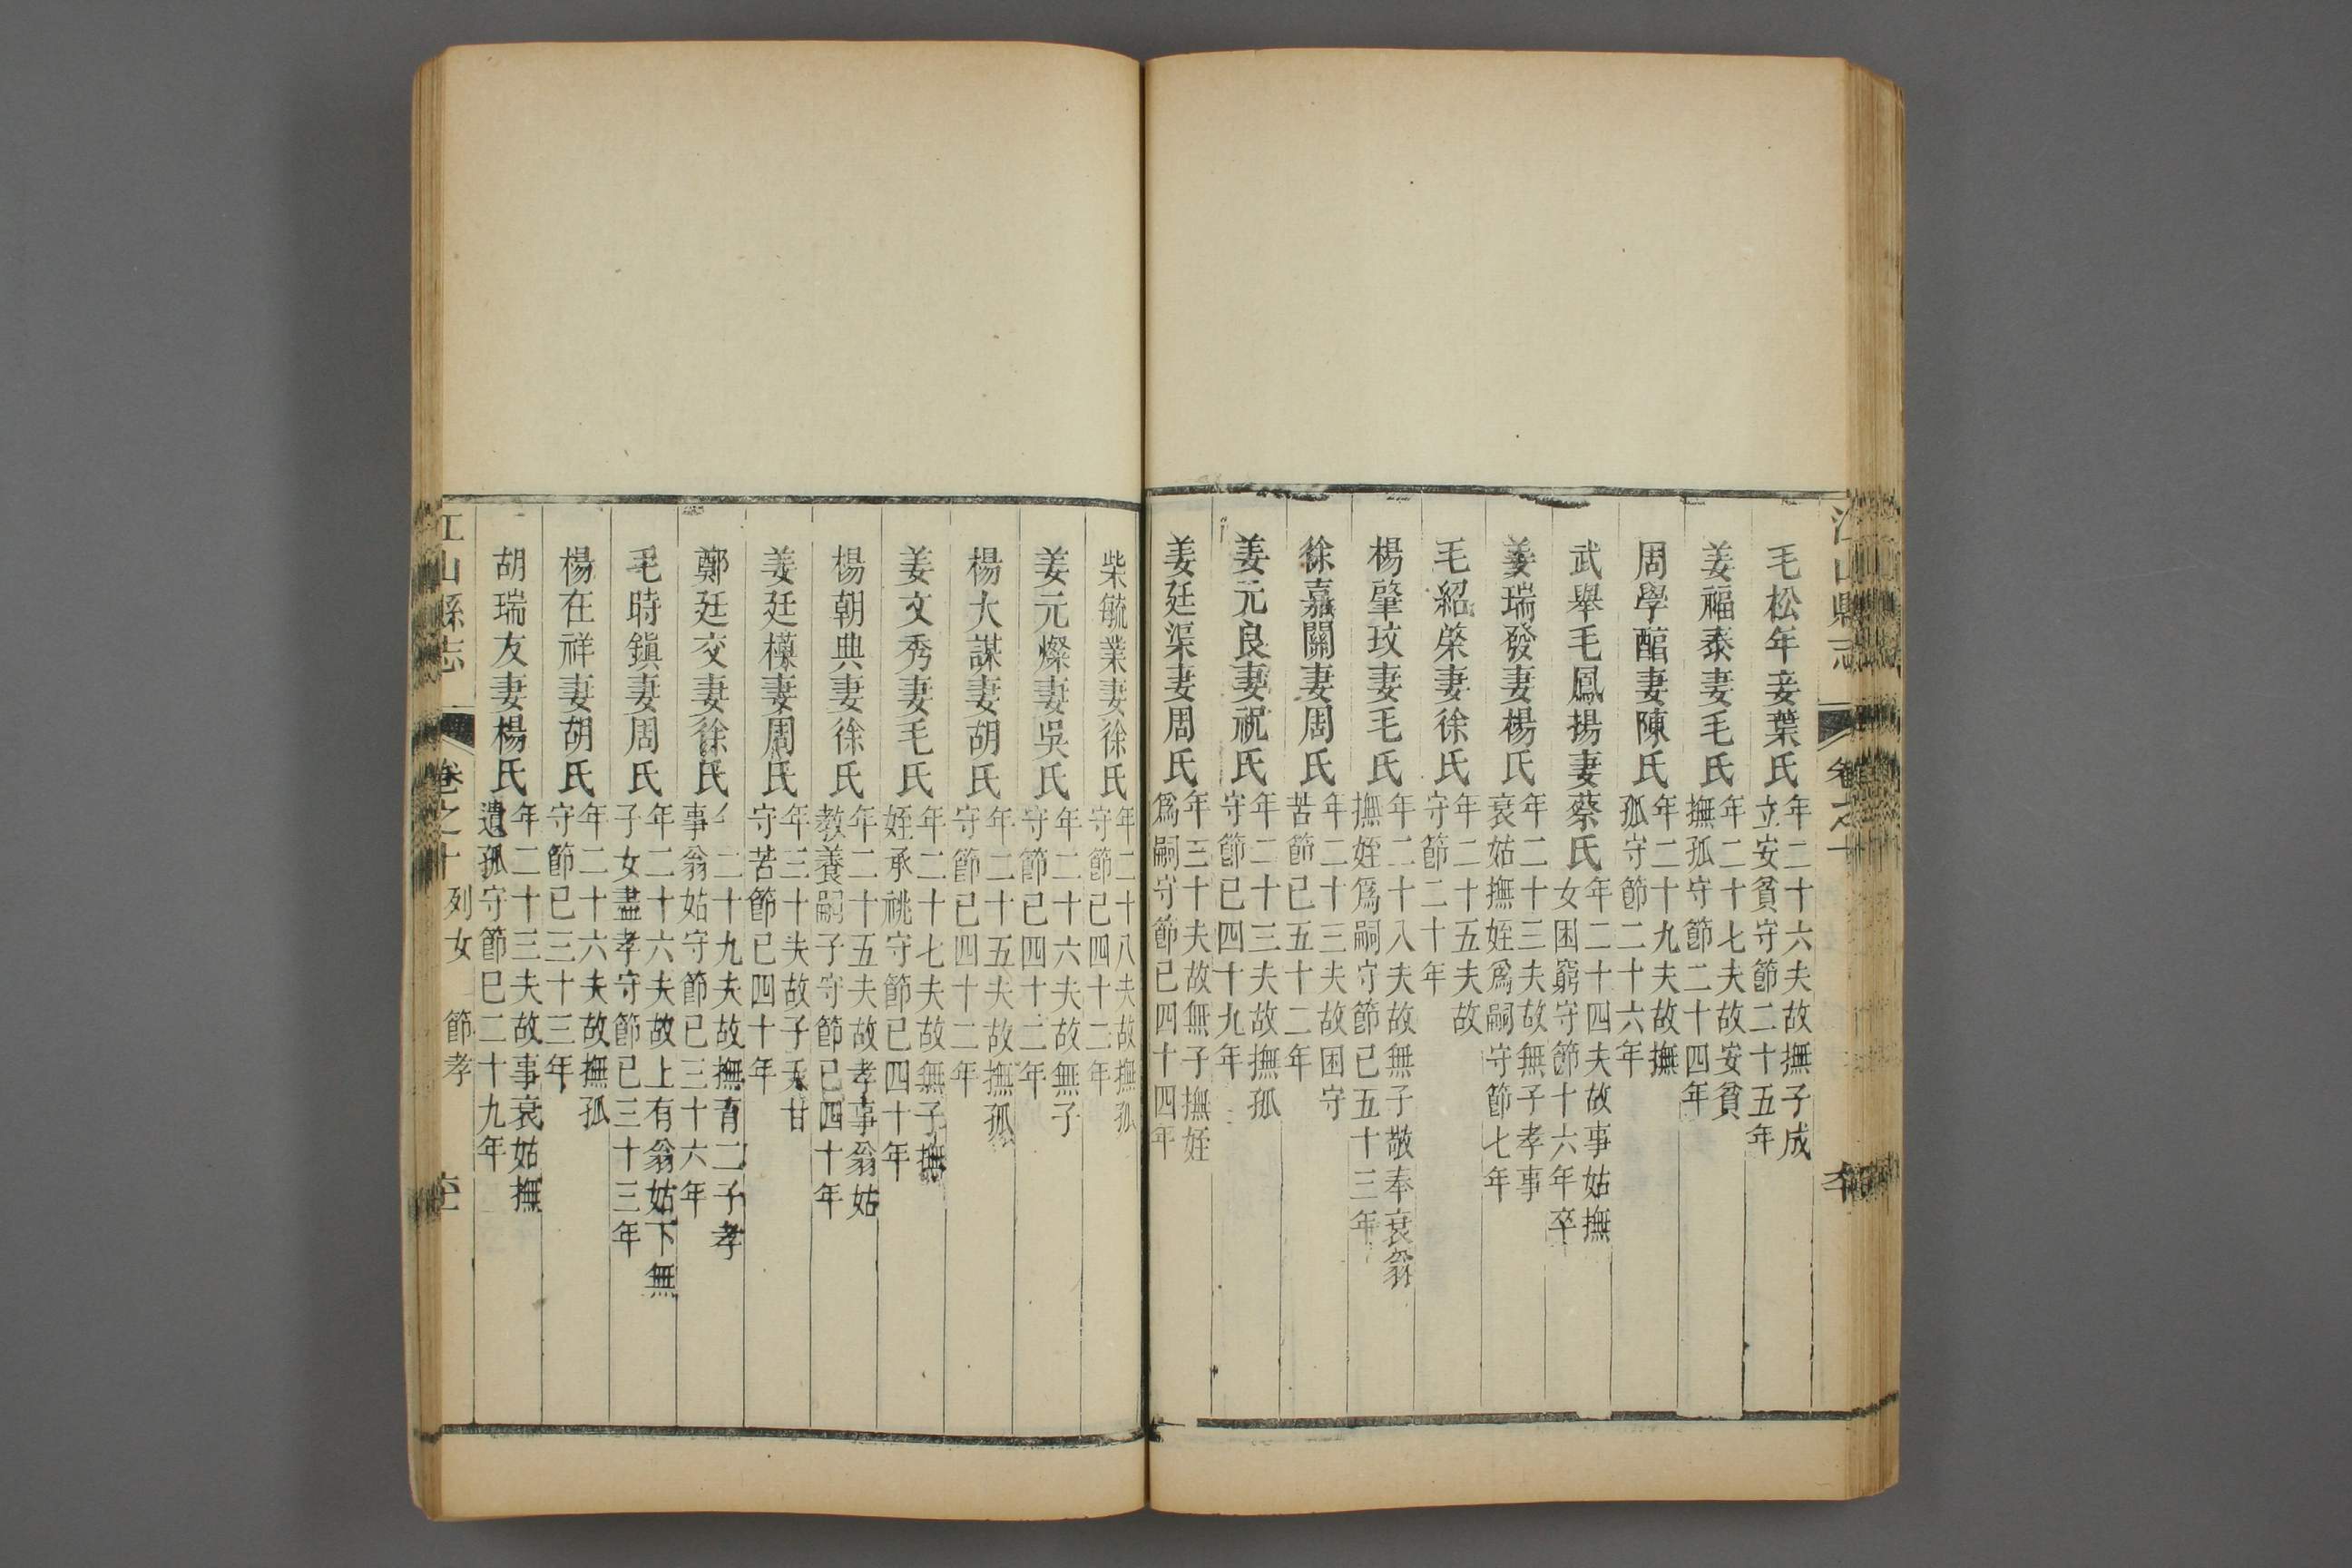 江山縣志
卷之十
毛松年妾葉氏 年二十六夫故撫子成立安貧守節二十五年
姜福泰妻毛氏 年二十七夫故安貧撫孤守節二十四年
周學醅妻陳氏 年二十九夫故撫孤守節二十六年
武舉毛鳳揚妻蔡氏 年二十四夫故事姑撫女困窮守節十六年卒
姜瑞發妻楊氏 年二十三夫故無子孝事衰姑撫姪爲嗣守節七年
毛紹榮妻徐氏 年二十五夫故守節二十年
楊肇玟妻毛氏 年二十八夫故無子敬奉衰翁撫姪爲嗣守節已五十三年
徐嘉關妻周氏 年二十三夫故困守苦節已五十二年
姜元良妻祝氏 年二十三夫故撫孤守節已四十九年
姜廷渠妻周氏 年三十夫故無子撫姪爲嗣守節已四十四年
柴毓業妻徐氏 年二十八夫故撫孤守節已四十二年
姜元燦妻吳氏 年二十六夫故無子守節已四十二年
楊大謀妻胡氏 年二十五夫故撫孤守節已四十二年
姜文秀妻毛氏 年二十七夫故無子撫姪承祧守節已四十年
楊朝典妻徐氏 年二十五夫故孝事翁姑教養嗣子守節已四十年
姜廷櫄妻周氏 年三十夫故子夭甘守苦節已四十年
鄭廷交妻徐氏 年二十九夫故撫育二子孝事翁姑守節已三十六年
毛時鎮妻周氏 年二十六夫故上有翁姑下無子女盡孝守節已三十三年
楊在祥妻胡氏 年二十六夫故撫孤守節已三十三年
胡瑞友妻楊氏 年二十三夫故事衰姑撫遺孤守節已二十九年
江山縣志
卷之十 列女 節孝